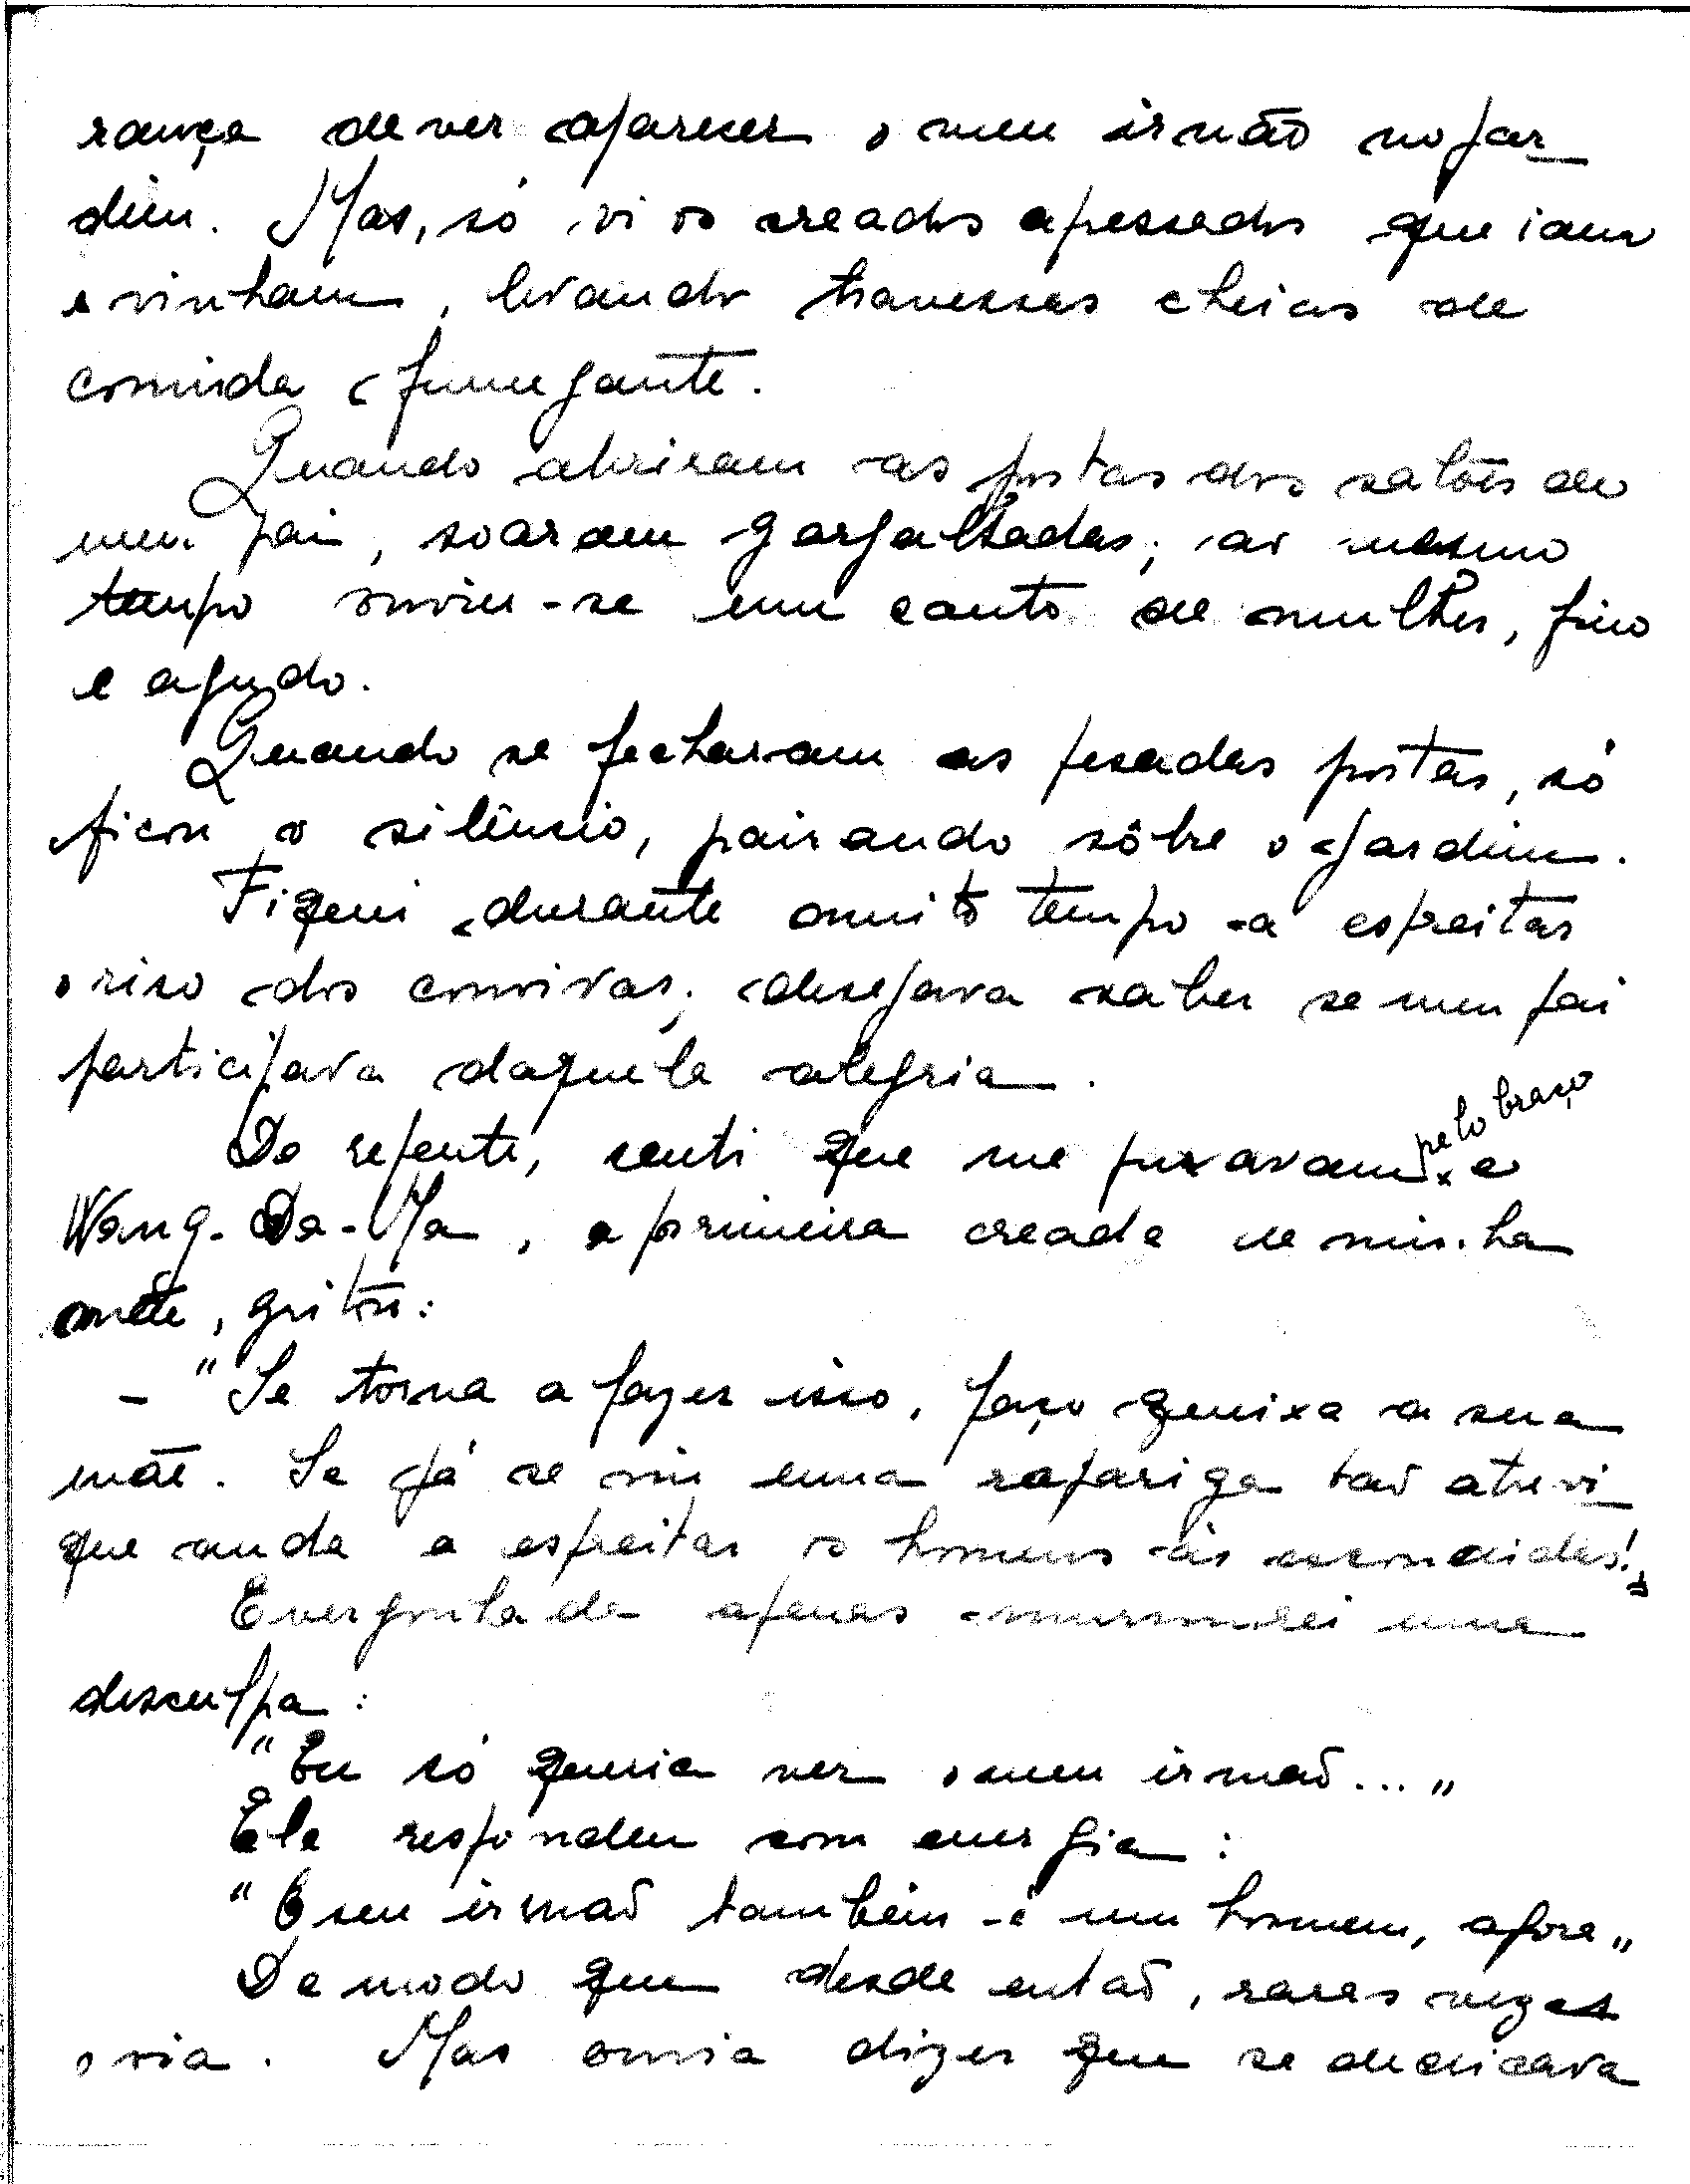 rança de ver aparecer o meu irmão no jar_
dim. Mas, só vi os creados apressados que iam
e vinham, levando travessas cheias de
comida fumegante.
Quando abriram as portas dos salões de
meu pai, soaram gargalhadas; ao mesmo
tempo ouviu-se um canto de mulher, fino
e agudo.
Quando se fecharam as pesadas portas, só
ficou o silêncio, pairando sôbre o jardim.
Fiquei durante muito tempo a espreitar
o riso dos convivas; desejava saber se meu pai
participava daquela alegria.
De repente, senti que me puxavam pelo braço e
Wang-Da-Ma, a primeira creada de minha
mãe, gritou:
- "Se torna a fazer isso, faço queixa a sua
mãe. Se já se viu uma rapariga tão atrevi_
que anda a espreitar os homens ás escondidas!"
Envergonhada apenas murmurei uma
desculpa:
"Eu só queria ver o meu irmão..."
Ela respondeu com energia:
"O seu irmão também é um homem, agora"
De modo que desde então, raras vezes
o via. Mas ouvia dizer que se dedicava